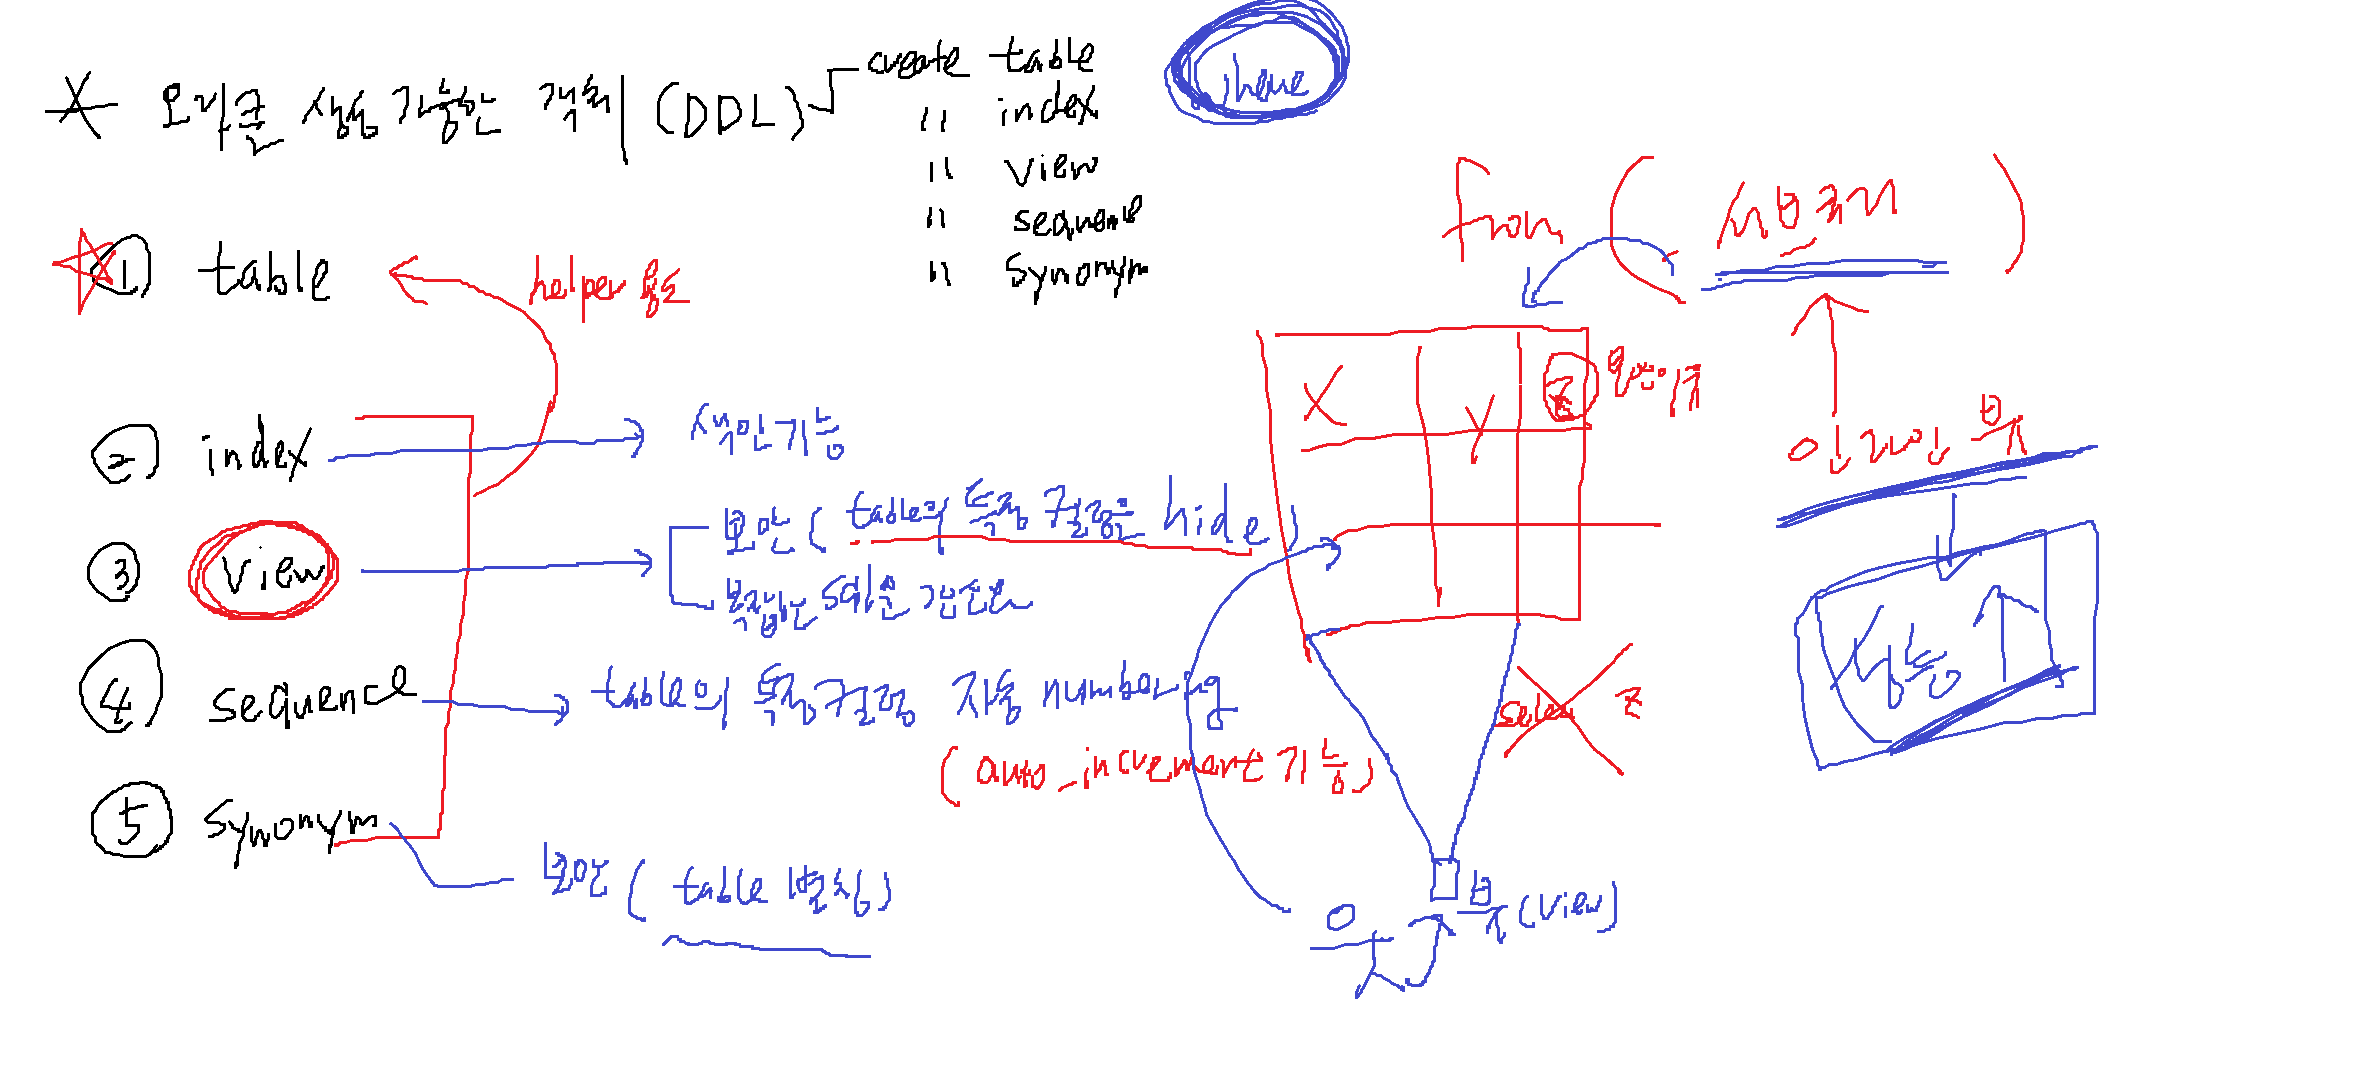 * 오라클 생성 가능한 객체 (DDL)
create table
" index
" view
" sequence
" synonym
① table
helper 용도
② index
색인기능
③ view
보안 ( table의 특정 컬럼은 hide )
복잡한 SQL문 간소화
④ sequence
table의 특정컬럼 자동 numbering
( auto_increment 기능 )
⑤ synonym
보안 ( table 별칭 )
from ( 서브쿼리 )
X Y Z
인라인 뷰
성능 ↑
select Z
뷰 (view)